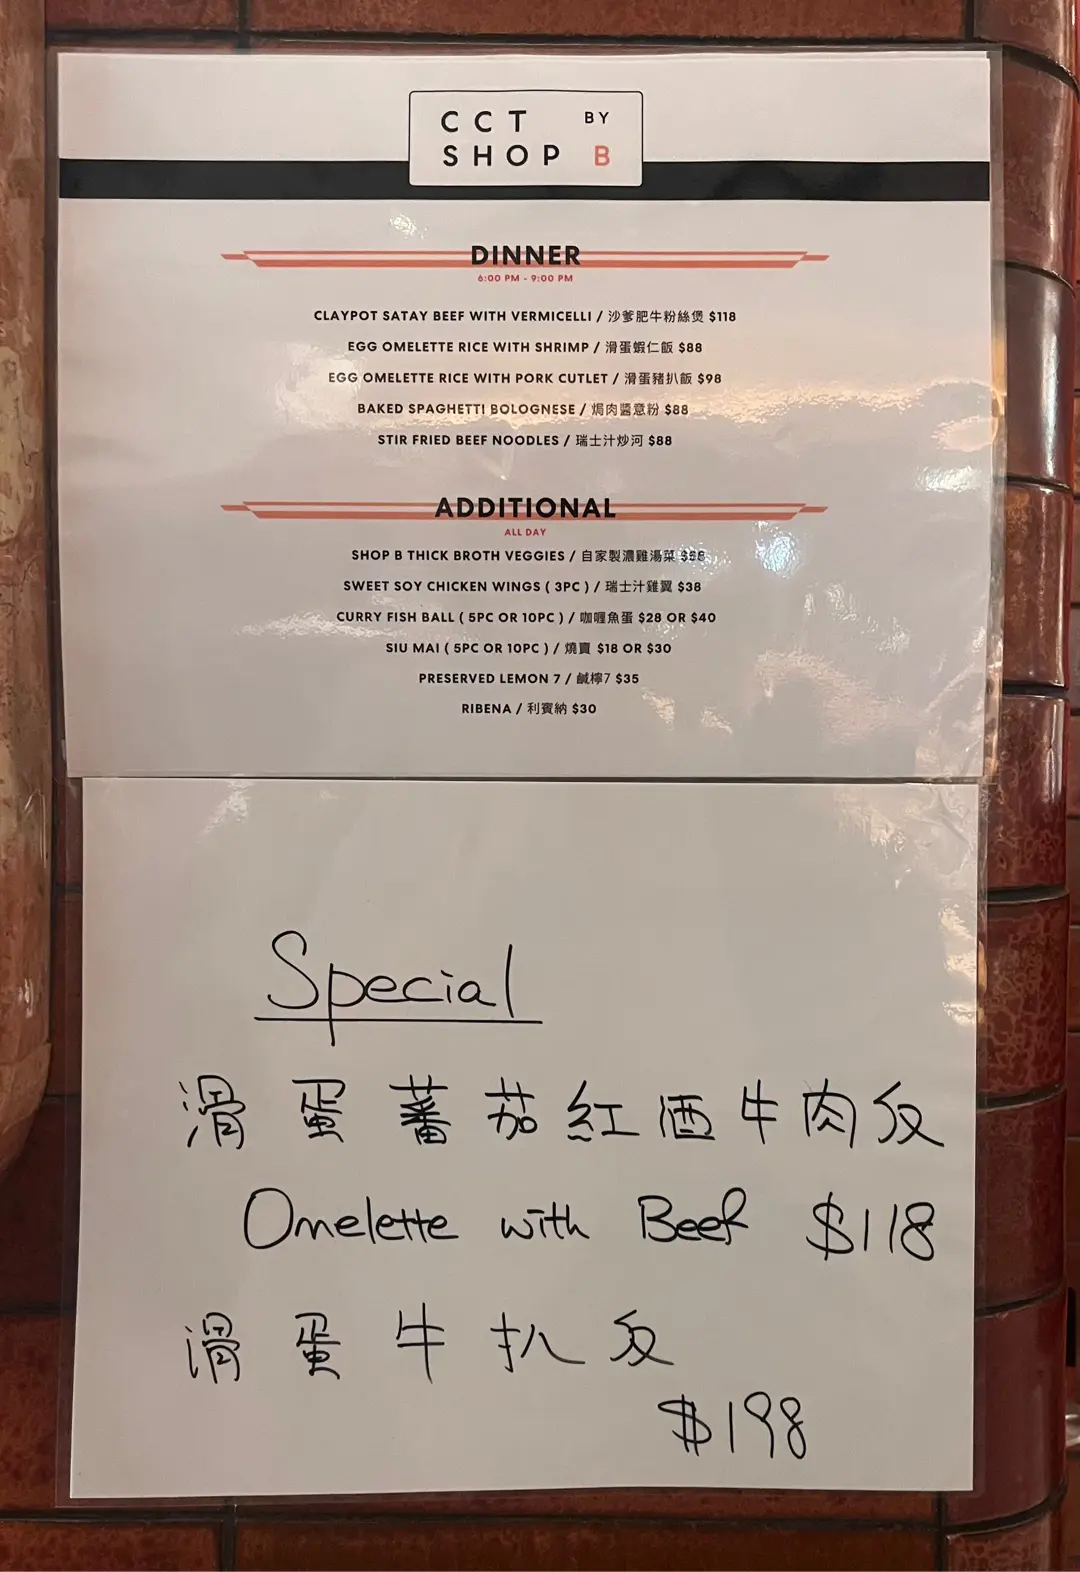 CCT BY
SHOP B
DINNER
6:00 PM - 9:00 PM
CLAYPOT SATAY BEEF WITH VERMICELLI / 沙爹肥牛粉絲煲 $118
EGG OMELETTE RICE WITH SHRIMP / 滑蛋蝦仁飯 $88
EGG OMELETTE RICE WITH PORK CUTLET / 滑蛋豬扒飯 $98
BAKED SPAGHETTI BOLOGNESE / 焗肉醬意粉 $88
STIR FRIED BEEF NOODLES / 瑞士汁炒河 $88
ADDITIONAL
ALL DAY
SHOP B THICK BROTH VEGGIES / 自家製濃雞湯菜
SWEET SOY CHICKEN WINGS ( 3PC ) / 瑞士汁雞翼 $38
CURRY FISH BALL ( 5PC OR 10PC ) / 咖喱魚蛋 $28 OR $40
SIU MAI ( 5PC OR 10PC ) / 燒賣 $18 OR $30
PRESERVED LEMON 7 / 鹹檸7 $35
RIBENA / 利賓納 $30
Special
滑蛋蕃茄紅酒牛肉反
Omelette with Beef $118
滑蛋牛扒反
$198